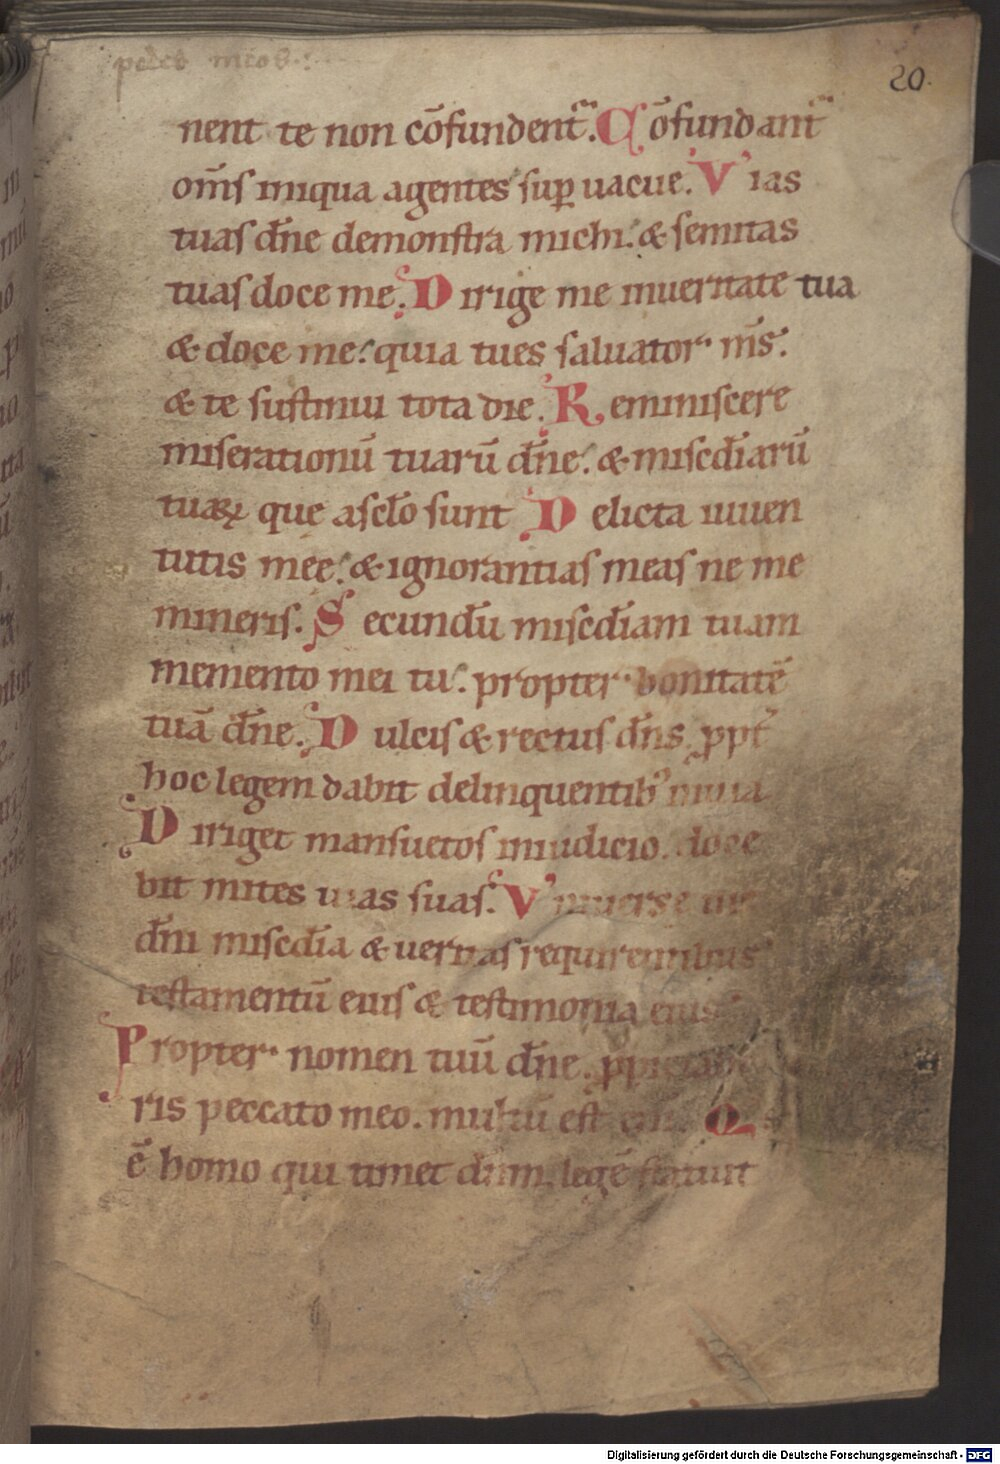 pedes meos
20.
nent te non cōfundent᷑. Cōfundant᷑
om̄s iniqua agentes sup uacue. Vias
tuas dn̄e demonstra michi: & semitas
tuas doce me. Dirige me inueritate tua
& doce me: quia tues saluator nr̄s.
& te sustinui tota die. Reminiscere
miserationū tuarū dn̄e: & misc̄diarū
tuaꝝ que asc̄lo sunt Delicta iuuen
tutis mee: & ignorantias meas ne me
mineris. Secundū misc̄diam tuam
memento mei tu: propter bonitatē
tuā dn̄e. Dulcis & rectus dn̄s. ꝓpt᷑
hoc legem dabit delinquentibꝰ inuia
Diriget mansuetos iniudicio. doce
bit mites uias suas. Vniuerse uie
dn̄i misc̄dia & ueritas requirentibus
testamentū eius & testimonia eius
Propter nomen tuū dn̄e.
ris peccato meo. multū est Q
ē homo qui timet dn̄m. legē statuit
Digitalisierung gefördert durch die Deutsche Forschungsgemeinschaft - DFG